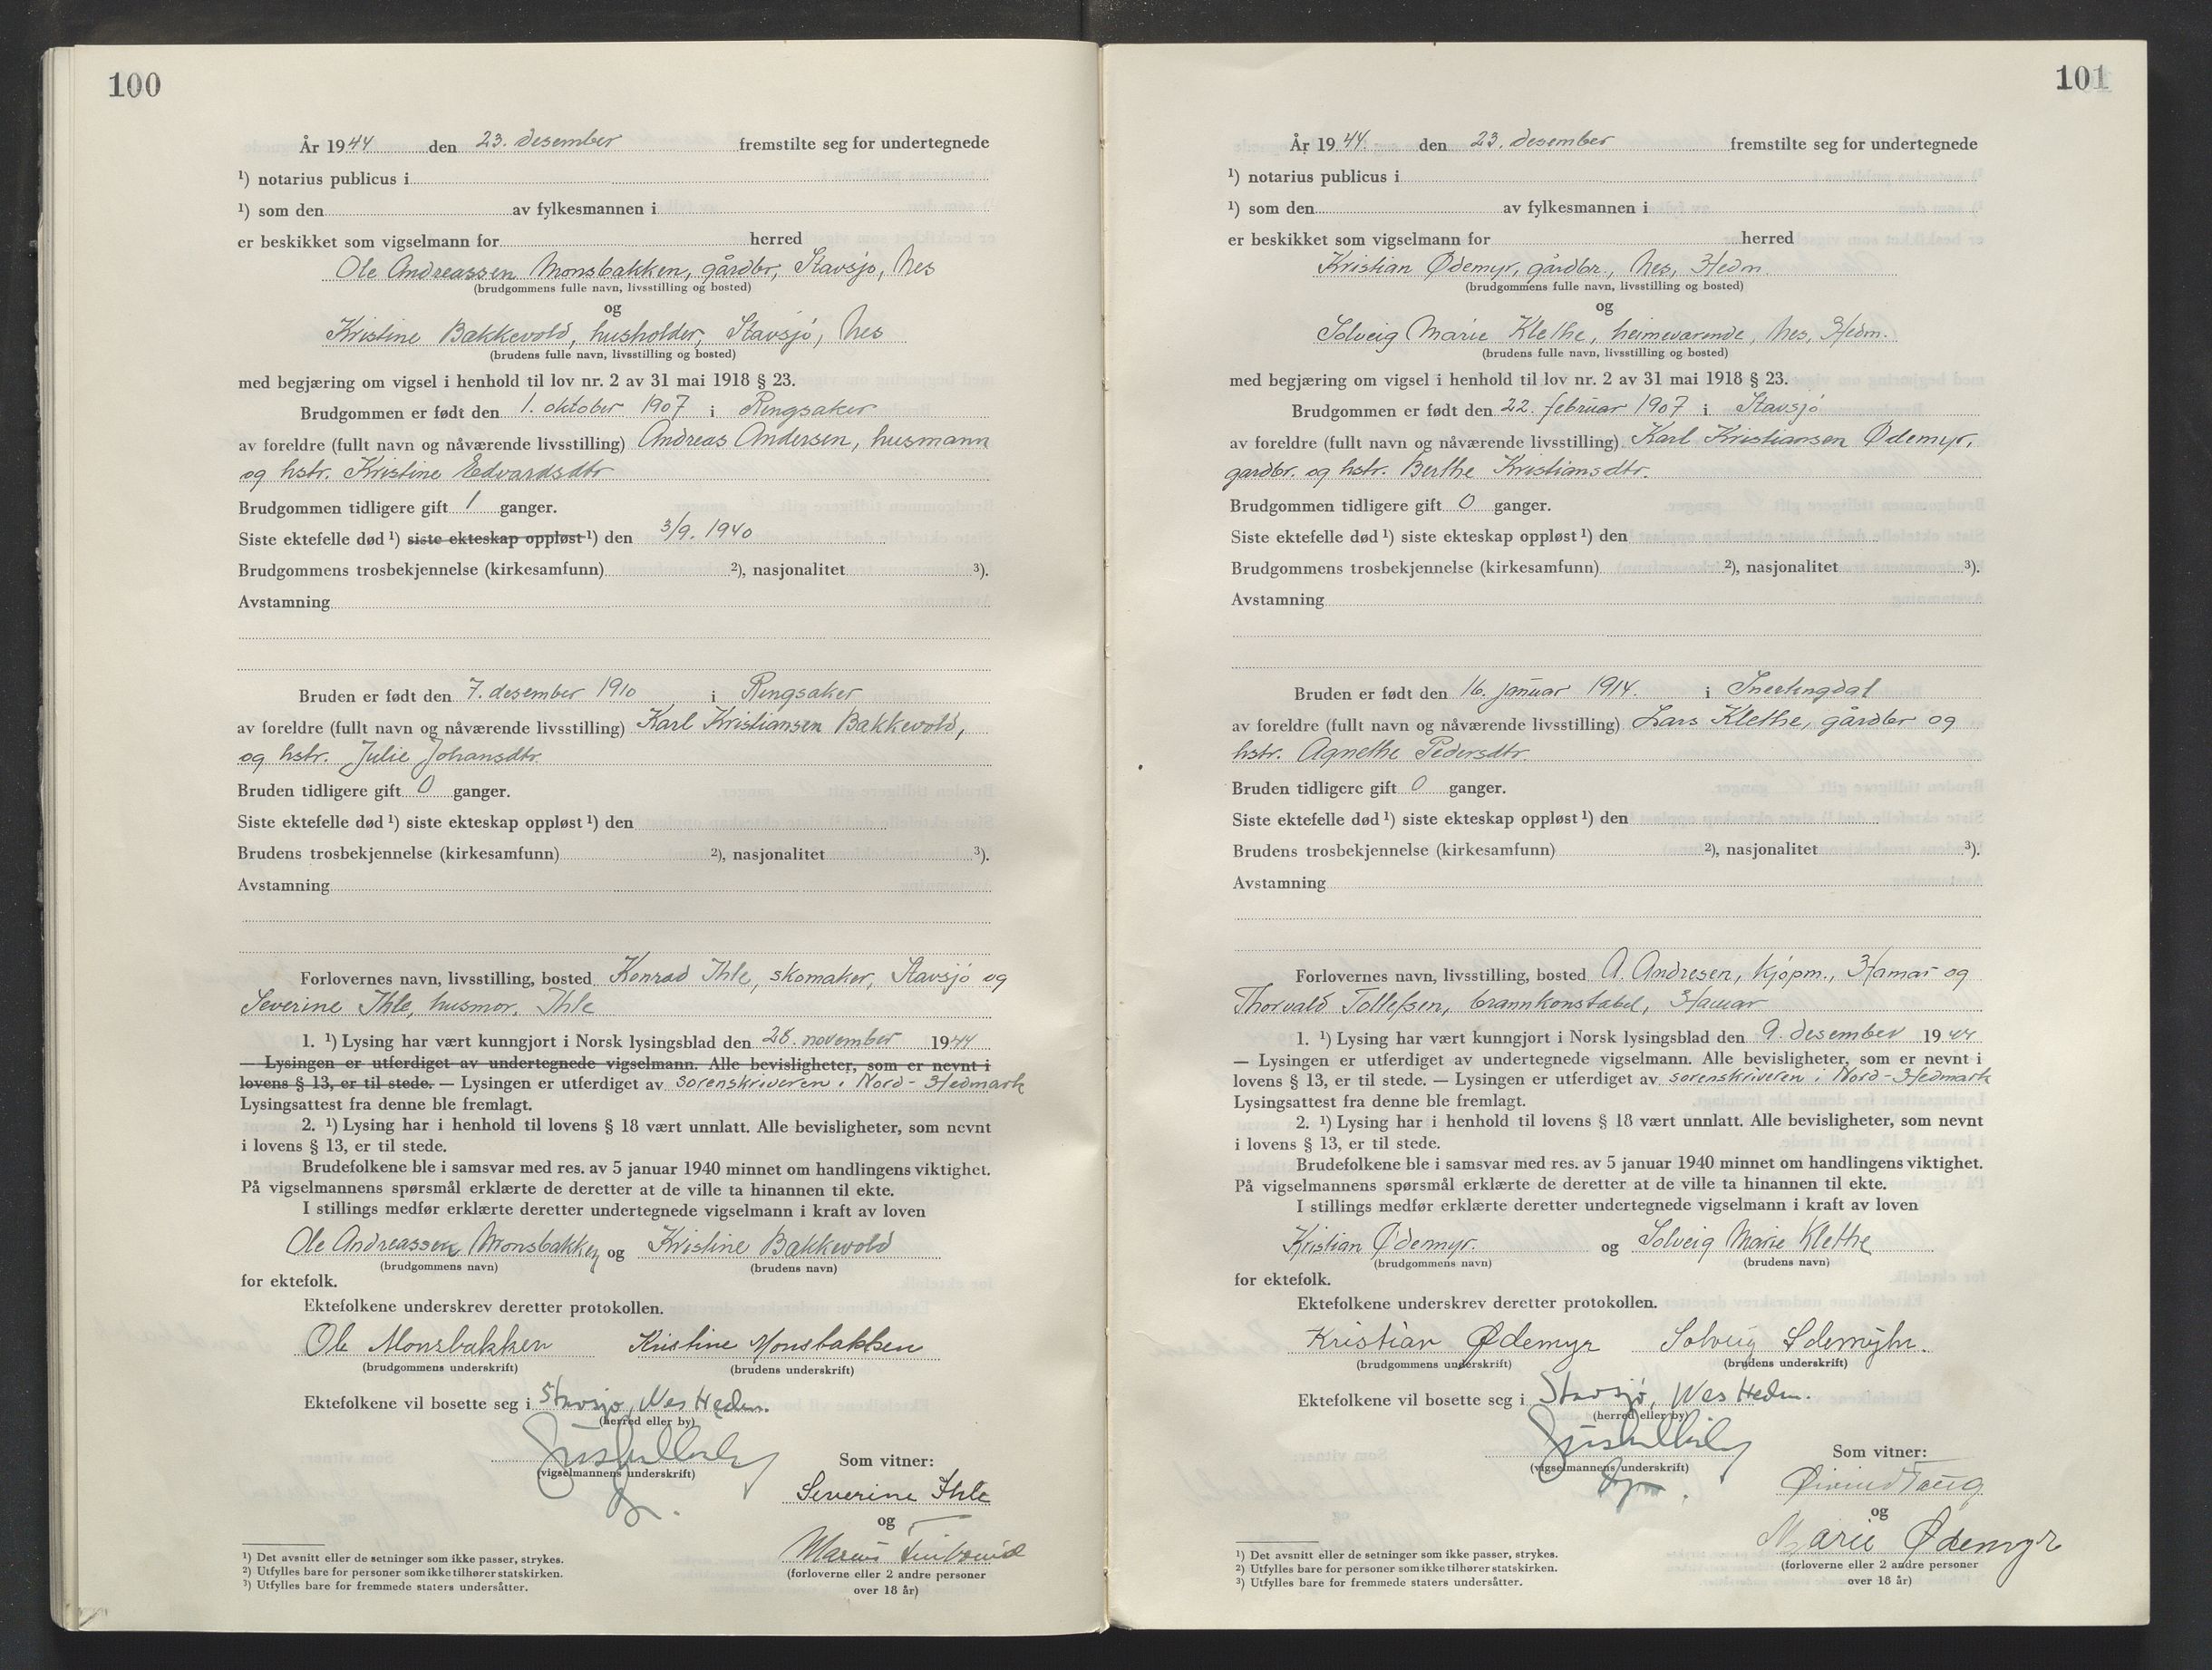 100
År 1944 den 23. desember fremstilte seg for undertegnede
¹) notarius publicus i
¹) som den av fylkesmannen i
er beskikket som vigselmann for herred
Ole Andreassen Monsbakken, gårdbr, Stavsjø, Nes
(brudgommens fulle navn, livsstilling og bosted)
og
Kristine Bakkevold, husholder, Stavsjø, Nes
(brudens fulle navn, livsstilling og bosted)
med begjæring om vigsel i henhold til lov nr. 2 av 31 mai 1918 § 23.
Brudgommen er født den 1. oktober 1907 i Ringsaker
av foreldre (fullt navn og nåværende livsstilling) Andreas Andersen, husmann
og hstr. Kristine Edvardsdtr
Brudgommen tidligere gift 1 ganger.
Siste ektefelle død ¹) siste ekteskap oppløst ¹) den 3/9. 1940
Brudgommens trosbekjennelse (kirkesamfunn) ²), nasjonalitet ³).
Avstamning
Bruden er født den 7. desember 1910 i Ringsaker
av foreldre (fullt navn og nåværende livsstilling) Karl Kristiansen Bakkevold,
og hstr. Julie Johansdtr.
Bruden tidligere gift 0 ganger.
Siste ektefelle død ¹) siste ekteskap oppløst ¹) den
Brudens trosbekjennelse (kirkesamfunn) ²), nasjonalitet ³).
Avstamning
Forlovernes navn, livsstilling, bosted Konrad Ihle, skomaker, Stavsjø og
Severine Ihle, husmor, Ihle
1. ¹) Lysing har vært kunngjort i Norsk lysingsblad den 28. november 1944
— Lysingen er utferdiget av undertegnede vigselmann. Alle bevisligheter, som er nevnt i
lovens § 13, er til stede. — Lysingen er utferdiget av sorenskriveren i Nord-Hedmark
Lysingsattest fra denne ble fremlagt.
2. ¹) Lysing har i henhold til lovens § 18 vært unnlatt. Alle bevisligheter, som nevnt
i lovens § 13, er til stede.
Brudefolkene ble i samsvar med res. av 5 januar 1940 minnet om handlingens viktighet.
På vigselmannens spørsmål erklærte de deretter at de ville ta hinannen til ekte.
I stillings medfør erklærte deretter undertegnede vigselmann i kraft av loven
Ole Andreassen Monsbakken og Kristine Bakkevold
(brudgommens navn) (brudens navn)
for ektefolk.
Ektefolkene underskrev deretter protokollen.
Ole Monsbakken Kristine Monsbakken
(brudgommens underskrift) (brudens underskrift)
Ektefolkene vil bosette seg i Stavsjø, Nes Hedm.
(herred eller by)
(vigselmannens underskrift)
Som vitner:
Severine Ihle
og
(forloverne eller 2 andre personer
over 18 år)
¹) Det avsnitt eller de setninger som ikke passer, strykes.
²) Utfylles bare for personer som ikke tilhører statskirken.
³) Utfylles bare for fremmede staters undersåtter.
101
År 1944. den 23. desember fremstilte seg for undertegnede
¹) notarius publicus i
¹) som den av fylkesmannen i
er beskikket som vigselmann for herred
Kristian Ødemyr, gårdbr., Nes, Hedm.
(brudgommens fulle navn, livsstilling og bosted)
og
Solveig Marie Klethe, heimeværende, Nes, Hedm.
(brudens fulle navn, livsstilling og bosted)
med begjæring om vigsel i henhold til lov nr. 2 av 31 mai 1918 § 23.
Brudgommen er født den 22. februar 1907 i Stavsjø
av foreldre (fullt navn og nåværende livsstilling) Karl Kristiansen Ødemyr,
gardbr. og hstr. Berthe Kristiansdtr.
Brudgommen tidligere gift 0 ganger.
Siste ektefelle død ¹) siste ekteskap oppløst ¹) den
Brudgommens trosbekjennelse (kirkesamfunn) ²), nasjonalitet ³).
Avstamning
Bruden er født den 16. januar 1914. i Snertingdal
av foreldre (fullt navn og nåværende livsstilling) Lars Klethe, gårdbr og
hstr. Agnethe Pedersdtr.
Bruden tidligere gift 0 ganger.
Siste ektefelle død ¹) siste ekteskap oppløst ¹) den
Brudens trosbekjennelse (kirkesamfunn) ²), nasjonalitet ³).
Avstamning
Forlovernes navn, livsstilling, bosted A. Andresen, kjøpm., Hamar og
Thorvald Tollefsen, brannkonstabel, Hamar
1. ¹) Lysing har vært kunngjort i Norsk lysingsblad den 9. desember 1944
— Lysingen er utferdiget av undertegnede vigselmann. Alle bevisligheter, som er nevnt i
lovens § 13, er til stede. — Lysingen er utferdiget av sorenskriveren i Nord-Hedmark
Lysingsattest fra denne ble fremlagt.
2. ¹) Lysing har i henhold til lovens § 18 vært unnlatt. Alle bevisligheter, som nevnt
i lovens § 13, er til stede.
Brudefolkene ble i samsvar med res. av 5 januar 1940 minnet om handlingens viktighet.
På vigselmannens spørsmål erklærte de deretter at de ville ta hinannen til ekte.
I stillings medfør erklærte deretter undertegnede vigselmann i kraft av loven
Kristian Ødemyr. og Solveig Marie Klethe
(brudgommens navn) (brudens navn)
for ektefolk.
Ektefolkene underskrev deretter protokollen.
Kristian Ødemyr Solveig
(brudgommens underskrift) (brudens underskrift)
Ektefolkene vil bosette seg i Stavsjø, Nes Hedm.
(herred eller by)
(vigselmannens underskrift)
Som vitner:
og
Marie Ødemyr
(forloverne eller 2 andre personer
over 18 år)
¹) Det avsnitt eller de setninger som ikke passer, strykes.
²) Utfylles bare for personer som ikke tilhører statskirken.
³) Utfylles bare for fremmede staters undersåtter.